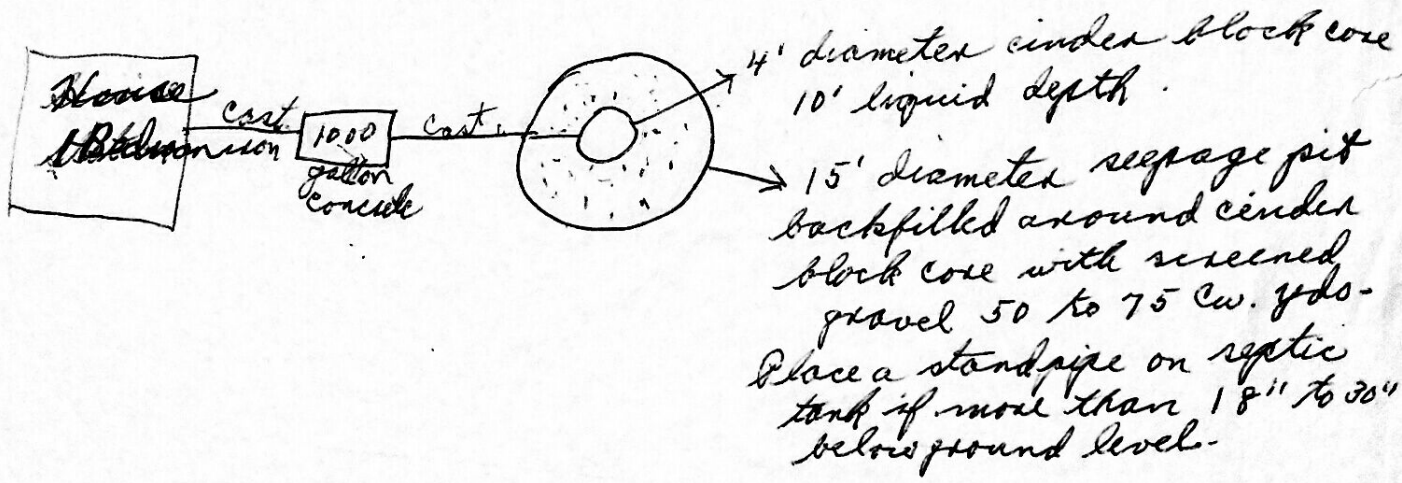 House
cast
1000
gallon
concrete
cast.
4' diameter cinder block core
10' liquid depth.
15' diameter seepage pit
backfilled around cinder
block core with screened
gravel 50 to 75 Cu. yds-
Place a standpipe on septic
tank if more than 18" to 30"
below ground level-